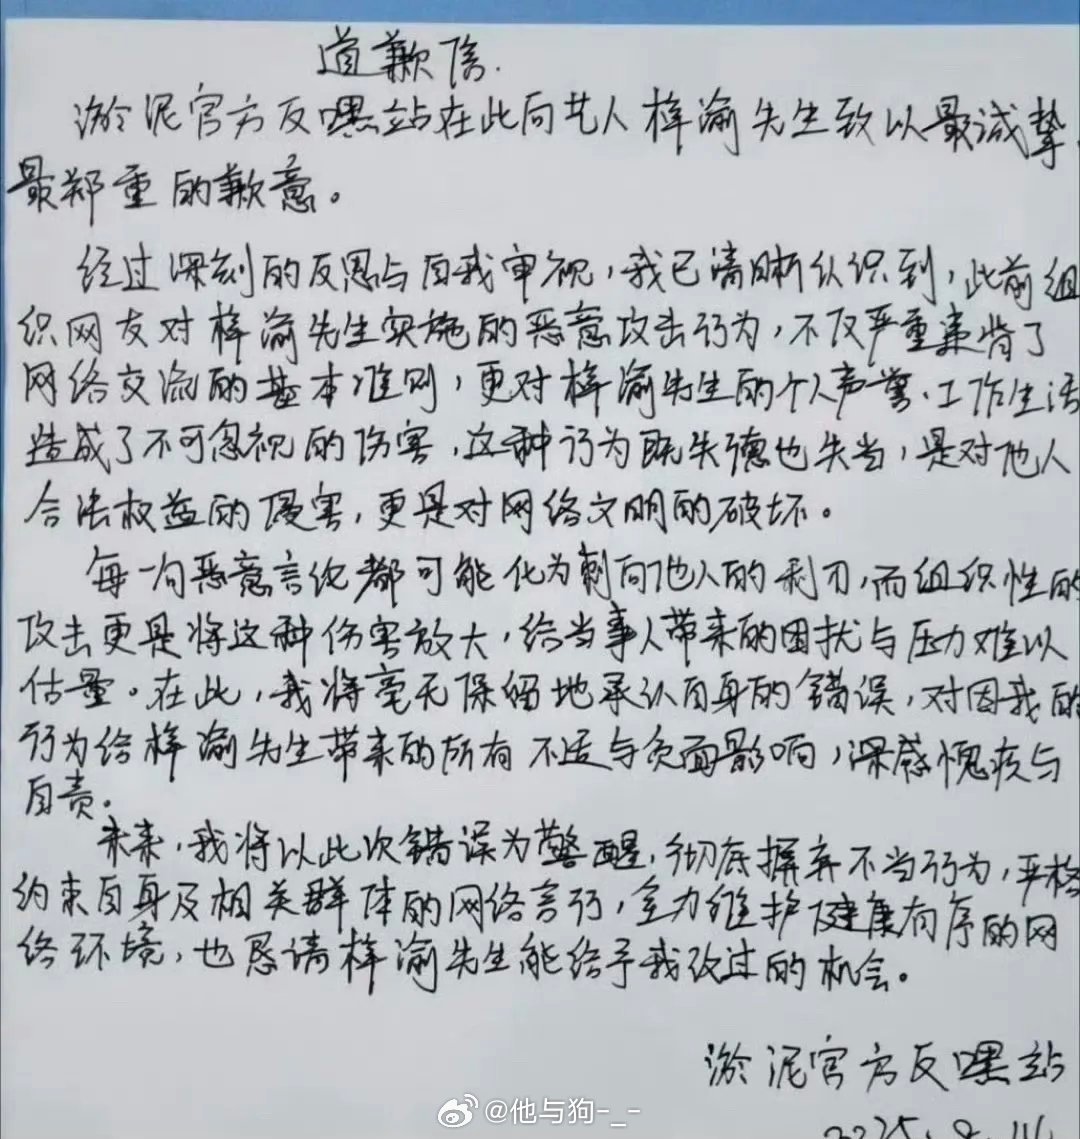 道歉信.
淤泥官方反嘿站在此向艺人梓渝先生致以最诚挚、
最郑重的歉意。
经过深刻的反思与自我审视，我已清晰认识到，此前组
织网友对梓渝先生实施的恶意攻击行为，不仅严重违背了
网络交流的基本准则，更对梓渝先生的个人声誉、工作生活
造成了不可忽视的伤害，这种行为既失德也失当，是对他人
合法权益的侵害，更是对网络文明的破坏。
每一句恶意言论都可能化为刺向他人的利刃，而组织性的
攻击更是将这种伤害放大，给当事人带来的困扰与压力难以
估量。在此，我将毫无保留地承认自身的错误，对因我的
行为给梓渝先生带来的所有不适与负面影响，深感愧疚与
自责。
未来，我将以此次错误为警醒，彻底摒弃不当行为，严格
约束自身及相关群体的网络言行，全力维护健康有序的网
络环境，也恳请梓渝先生能给予我改过的机会。
淤泥官方反嘿站
@他与狗-_-